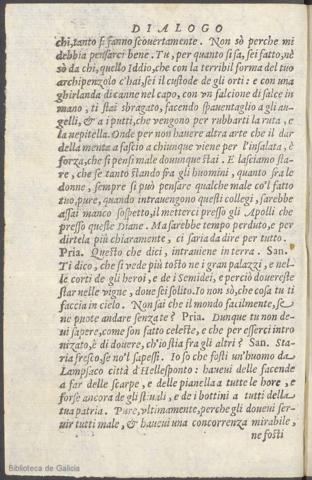 DIALOGO
chi, tanto si fanno scouertamente. Non sò perche mi
debbia pensarci bene. Tu, per quanto si sa, sei fatto, nè
sò da chi, quello Iddio, che con la terribil forma del tuo
archipenzolo c'hai, sei il custode de gli orti: e con una
ghirlanda di canne nel capo, con vn falcione di salce in
mano, ti stai sbragato, facendo spauentaglio a gli au-
gelli, & a i putti, che vengono per rubbarti la ruta, e
la nepitella. Onde per non hauere altra arte che il dar
della menta a fascio a chiunque viene per l'insalata, è
forza, che si pensi male dounque stai. E lasciamo sta-
re, che se tanto stando fra gli huomini, quanto fra le
donne, sempre si può pensare qualche male co'l fatto
tuo, pure, quando intrauengono questi collegi, sarebbe
assai manco sospetto, il metterci presso gli Apolli che
presso queste Diane. Ma sarebbe tempo perduto, e per
dirtela più chiaramente, ci saria da dire per tutto.
Pria. Questo che dici, intrauiene in terra. San.
Ti dico, che si vede più tosto ne i gran palazzi, e nel-
le corti de gli heroi, e de i Semidei, e perciò douereste
star nelle vigne, doue sei solito. Io non sò, che cosa tu ti
faccia in cielo. Non sai che il mondo facilmente, se
ne puote andare senza te? Pria. Dunque tu non de-
ui sapere, come son fatto celeste, e che per esserci intro
nizato, è di douere, ch'io stia fra gli altri? San. Sta-
ria fresco, se no'l sapessi. Io so che fosti un'huomo da
Lampsaco città d'Hellesponto: haueui delle facende
a far delle scarpe, e delle pianella a tutte l'hore, e
forse ancora de gli stiuali, e de i bottini a tutti della
tua patria. Pure, vltimamente, perche gli doueui ser-
uir tutti male, & haueui una concorrenza mirabile,
ne fosti
Biblioteca de Galicia